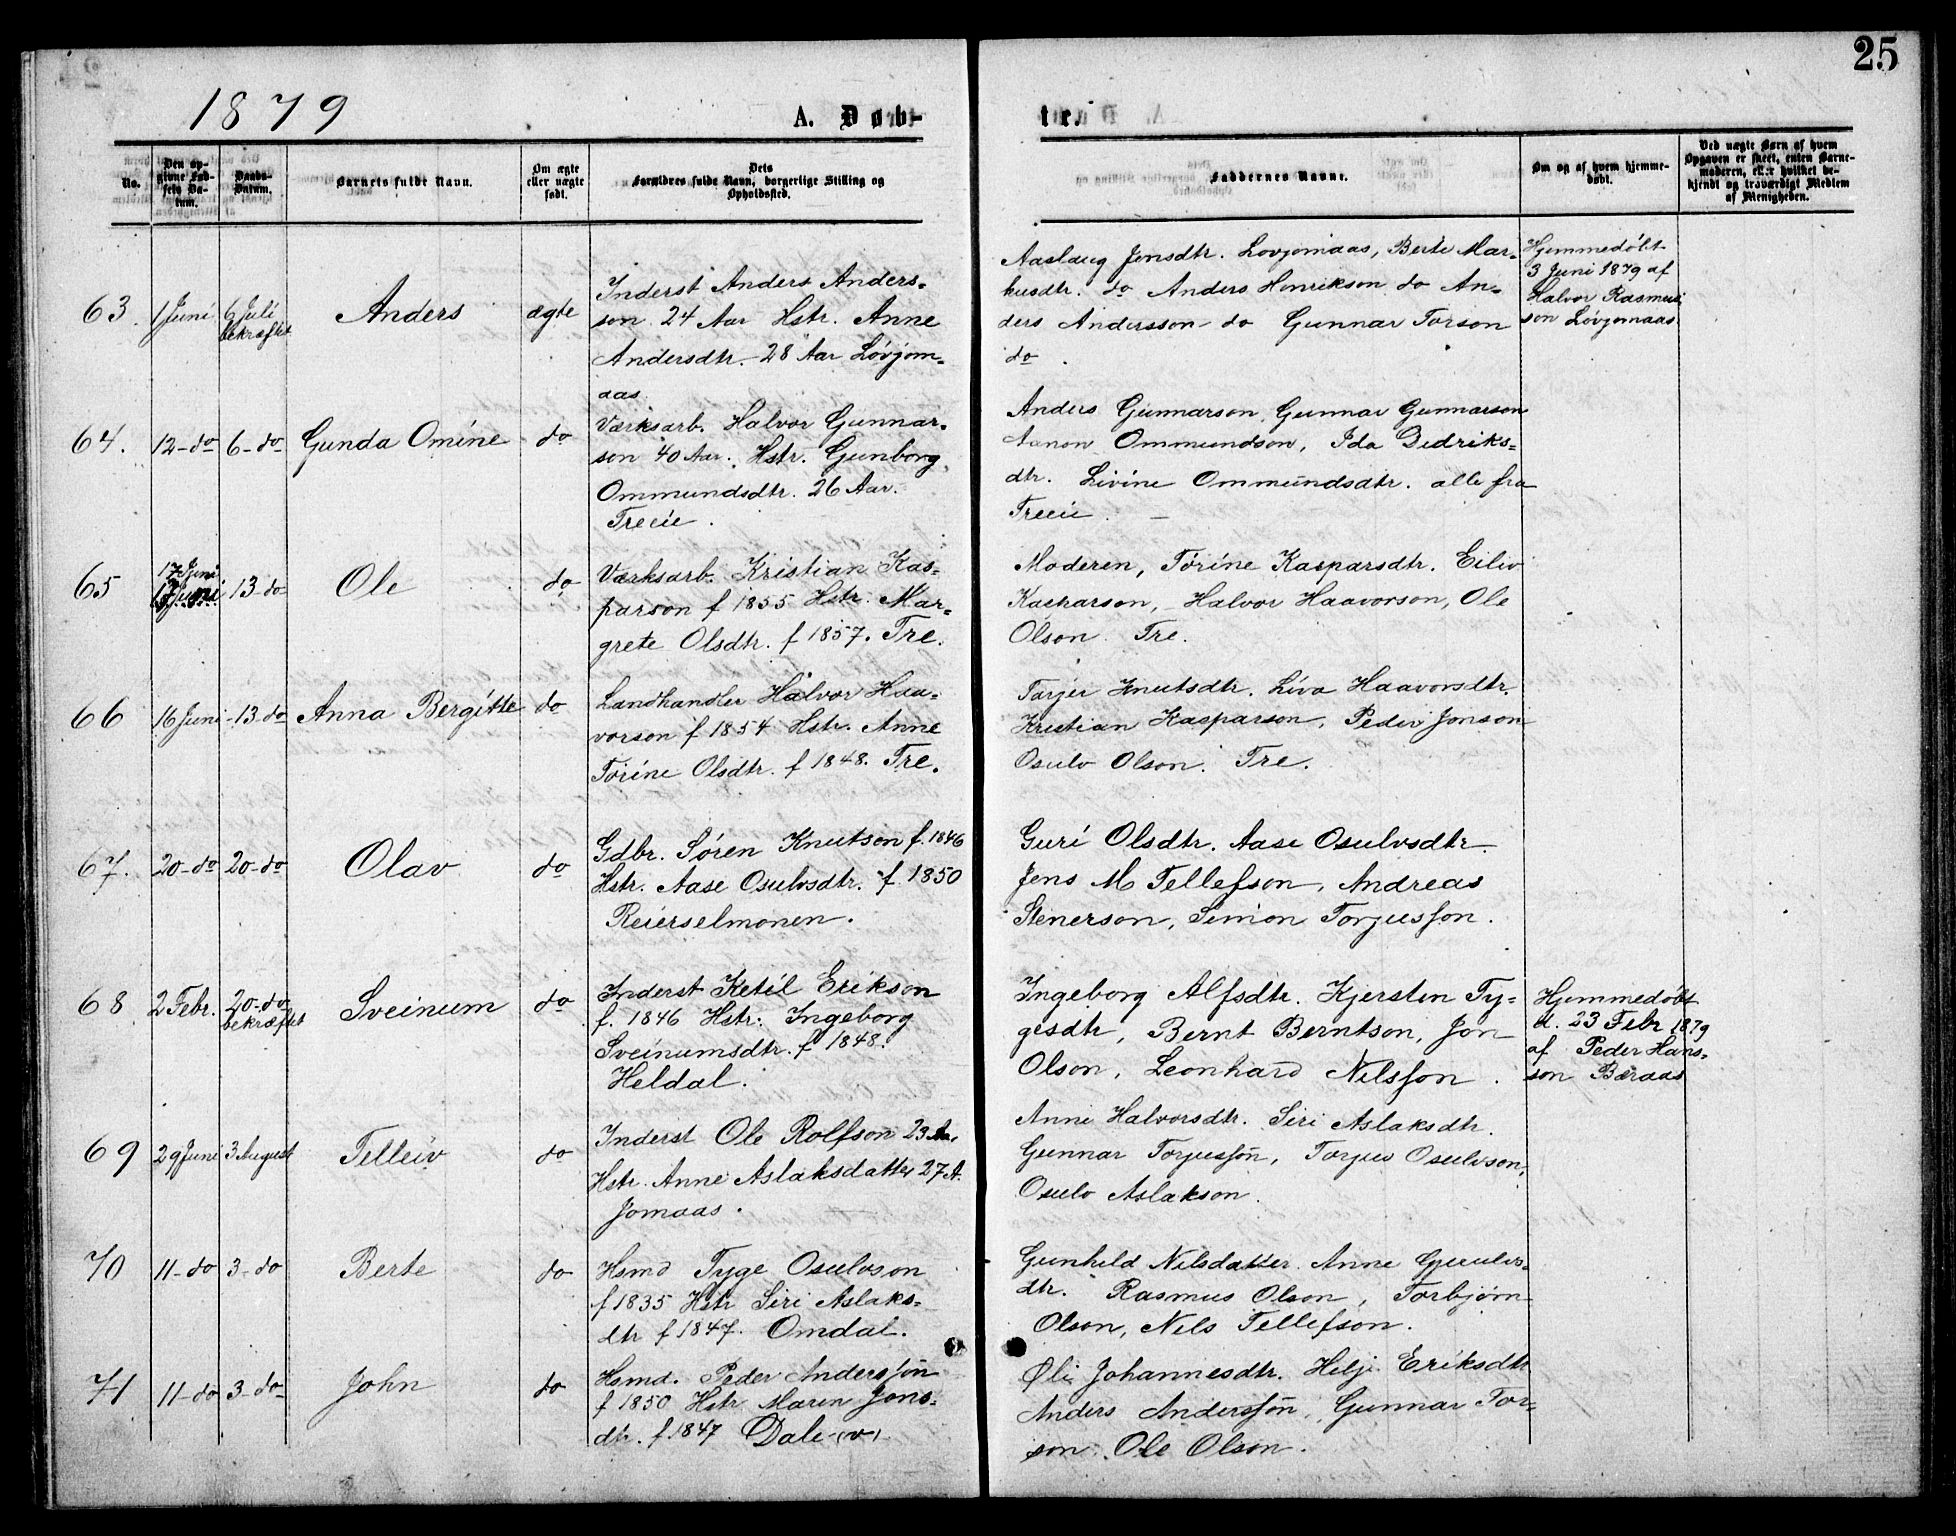 25
1879
A. Døb-
te.
No.
Den op-
givne Fød-
sels Da-
tum.
Daabs-
Datum.
Barnets fulde Navn.
Om ægte
eller uægte
født.
Dets
Forældres fulde Navn, borgerlige Stilling og
Opholdssted.
Faddernes Navne.
Om og af hvem hjemme-
døbt.
Ved uægte Børn af hvem
Opgaven er skeet, enten Barne-
moderen, eller hvilket be-
kjendt og troværdigt Medlem
af Menigheden.
63.
1 Juni
6 Juli
bekræftet
Anders
ægte
Inderst Anders Anders-
son 24 Aar Hstr. Anne
Andersdtr. 28 Aar Løvjom-
aas.
Aaslaug Jensdtr. Lovjomaas, Berte Mar-
kusdtr. do Anders Henrikson do An-
ders Andersson do Gunnar Torson
do.
Hjemmedøbt
3 Juni 1879 af
Halvor Rasmus-
son Løvjomaas
64.
12-do
6-do
Gunda Omine
do
Værksarb. Halvor Gunnar-
son 40 Aar. Hstr. Gunborg
Ommundsdtr. 26 Aar.
Treeie.
Anders Gunnarson, Gunnar Gunnarson
Aanon Ommundson, Ida Didriks-
dtr. Livine Ommundsdtr. alle fra
Treeie.
65
17 Juni
17 Juni
13-do
Ole
do
Værksarb. Kristian Kas-
parson f 1855 Hstr. Mar-
grete Olsdtr. f 1857. Tre.
Moderen, Torine Kasparsdtr. Eiliv
Kasparson, Halvor Haavorson, Ole
Olson. Tre.
66
16 Juni
13-do
Anna Bergitte
do
Landhandler Halvor Haa-
vorson f 1854 Hstr. Anne
Torine Olsdtr. f 1848. Tre.
Torjer Knutsdtr. Liva Haavorsdtr.
Kristian Kasparson, Peder Jonson
Osulv Olson. Tre.
67.
20-do
20-do
Olav
do
Gdbr. Søren Knutson f. 1846
Hstr. Aase Osulvsdtr. f. 1850
Reierselmonen.
Guri Olsdtr. Aase Osulvsdtr.
Jens M Tellefson, Andreas
Stenerson, Simon Torjusson.
68
2 Febr.
20-do
bekræftet
Sveinum
do
Inderst Ketil Erikson
f. 1846 Hstr. Ingeborg
Sveinumsdtr. f 1848.
Heldal.
Ingeborg Alfsdtr. Kjersten Ty-
gesdtr, Bernt Berntson, Jon
Olson, Leonhard Nilsson.
Hjemmedøbt
d. 23 Febr 1879
af Peder Hans-
son Bæraas
69
29 Juni
3 August
Telleiv
do
Inderst Ole Rolfson 23 Aar
Hstr. Anne Aslaksdatter 27 A.
Jomaas.
Anne Halvorsdtr. Siri Aslaksdtr.
Gunnar Torjussøn, Torjus Osulvson,
Osulv Aslakson.
70
11-do
3-do
Berte
do
Hsmd Tyge Osulvson
f 1835 Hstr Siri Aslaks-
dtr f 1847. Omdal.
Gunhild Nilsdatter. Anne Gjeruldvs-
dtr. Rasmus Olson, Torbjørn
Olson, Nils Tellefson.
71
11-do
3-do
John
do
Hsmd. Peder Anderssøn
f 1850 Hstr Maren Jons-
dtr. f. 1847 Dale (v)
Øli Johannesdtr. Helje Eriksdtr
Anders Anderssøn, Gunnar Tor-
son. Ole Olson.